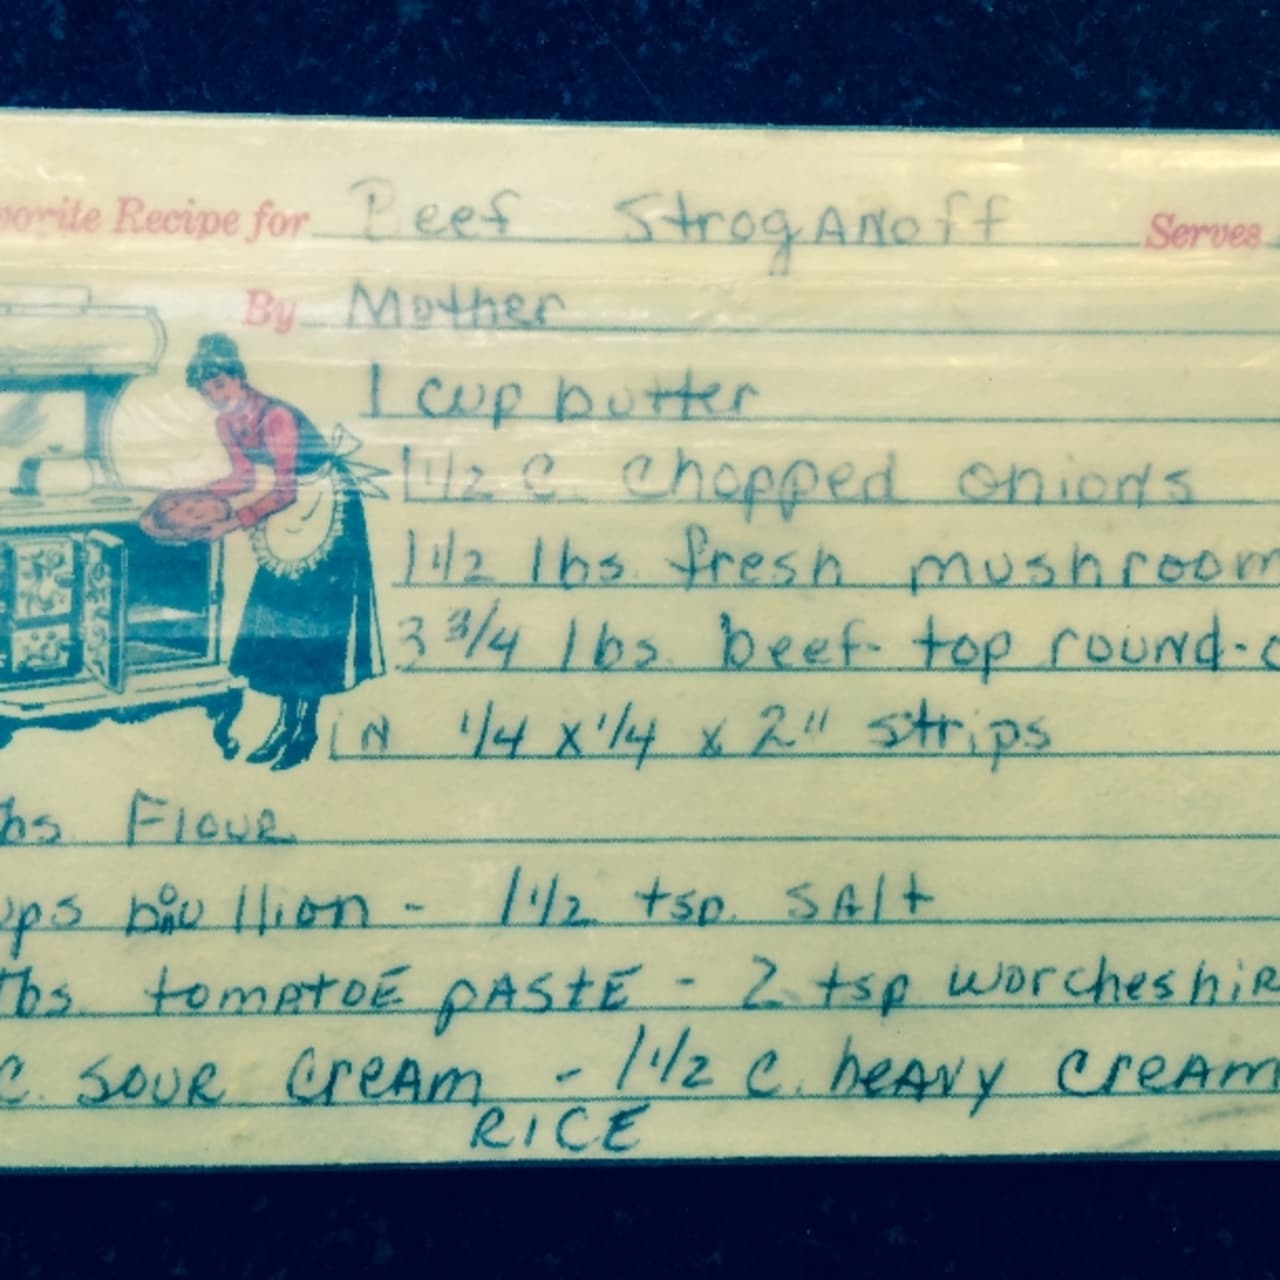 vorite Recipe for Beef StrogANoff Serves
By Mother
1 cup butter
1 1/2 C. chopped onions
1 1/2 lbs. fresh mushroom
3 3/4 lbs. beef- top round-c
iN 1/4 x 1/4 x 2" strips
bs. Flour
ups bouillion - 1 1/2 tsp. SAlt
Tbs. tomAtoE pAStE - 2 tsp worcheshiR
C. SOUR CreAm - 1 1/2 C. heAvy CreAm
RICE